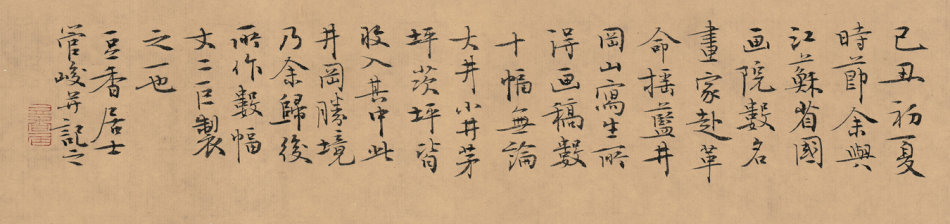 己丑初夏
時節余與
江蘇省國
画院數名
畫家赴革
命搖藍井
岡山寫生所
得画稿數
十幅無論
大井小井茅
坪茨坪皆
收入其中此
井岡勝境
乃余歸後
所作數幅
丈二巨製
之一也
豆香居士
管峻并記之